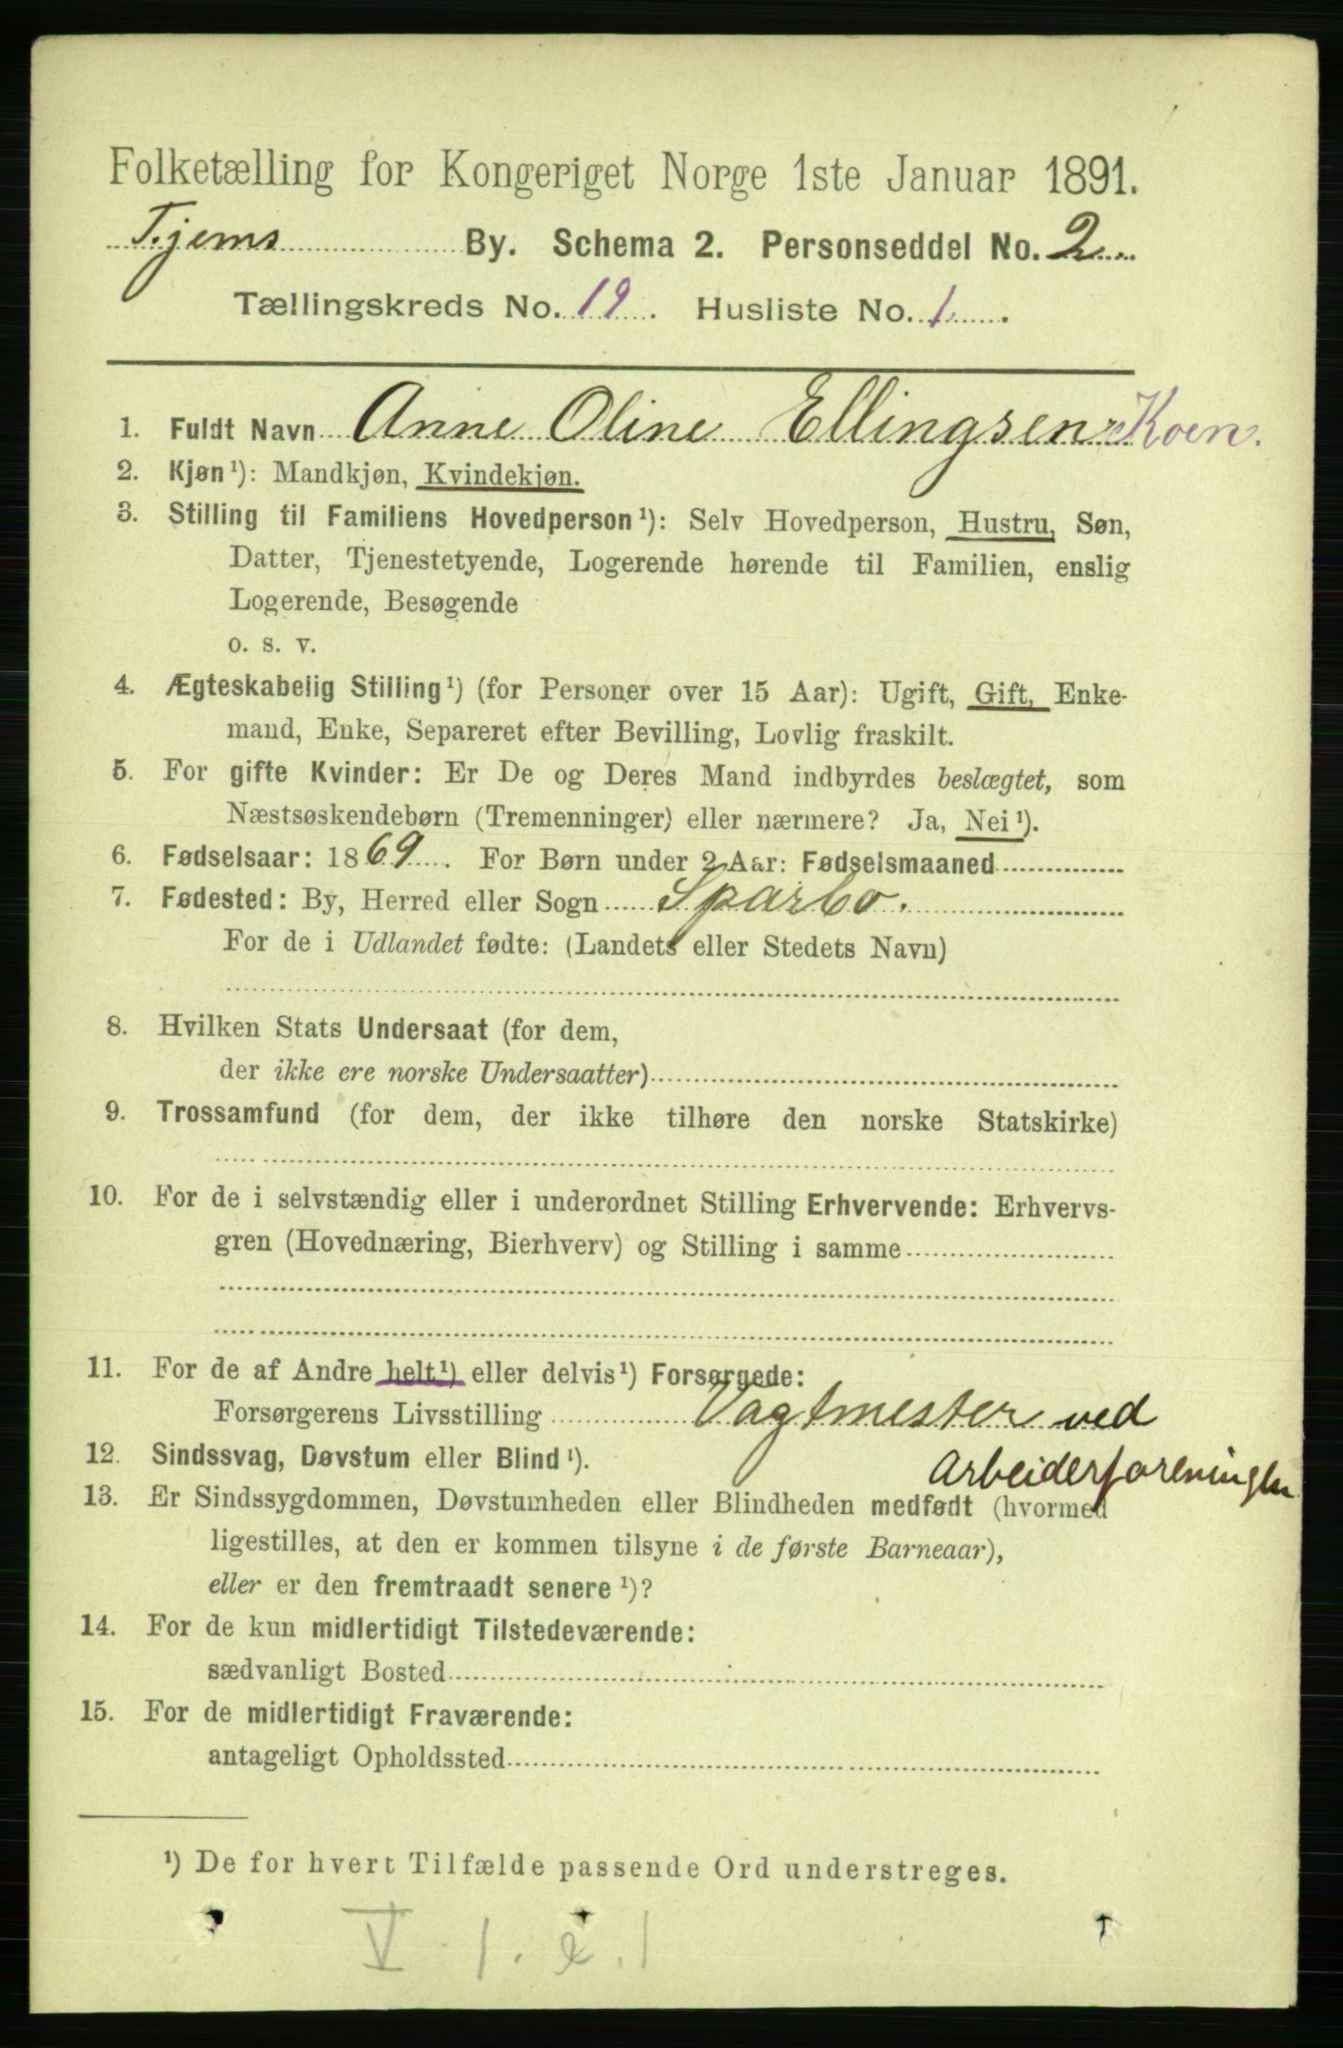 Folketælling for Kongeriget Norge 1ste Januar 1891.
Tjems By. Schema 2. Personseddel No. 2
Tællingskreds No. 19. Husliste No. 1.
1. Fuldt Navn Anne Oline Ellingsen Koen.
2. Kjøn¹): Mandkjøn, Kvindekjøn.
3. Stilling til Familiens Hovedperson¹): Selv Hovedperson, Hustru, Søn,
Datter, Tjenestetyende, Logerende hørende til Familien, enslig
Logerende, Besøgende
o. s. v.
4. Ægteskabelig Stilling¹) (for Personer over 15 Aar): Ugift, Gift, Enke-
mand, Enke, Separeret efter Bevilling, Lovlig fraskilt.
5. For gifte Kvinder: Er De og Deres Mand indbyrdes beslægtet, som
Næstsøskendebørn (Tremenninger) eller nærmere? Ja, Nei¹).
6. Fødselsaar: 1869. For Børn under 2 Aar: Fødselsmaaned
7. Fødested: By, Herred eller Sogn Sparbo.
For de i Udlandet fødte: (Landets eller Stedets Navn)
8. Hvilken Stats Undersaat (for dem,
der ikke ere norske Undersaatter)
9. Trossamfund (for dem, der ikke tilhøre den norske Statskirke)
10. For de i selvstændig eller i underordnet Stilling Erhvervende: Erhvervs-
gren (Hovednæring, Bierhverv) og Stilling i samme
11. For de af Andre helt¹) eller delvis¹) Forsørgede:
Forsørgerens Livsstilling Vagtmester ved
Arbeiderforeningen
12. Sindssvag, Døvstum eller Blind¹).
13. Er Sindssygdommen, Døvstumheden eller Blindheden medfødt (hvormed
ligestilles, at den er kommen tilsyne i de første Barneaar),
eller er den fremtraadt senere¹)?
14. For de kun midlertidigt Tilstedeværende:
sædvanligt Bosted
15. For de midlertidigt Fraværende:
antageligt Opholdssted
¹) De for hvert Tilfælde passende Ord understreges.
V 1. e. 1